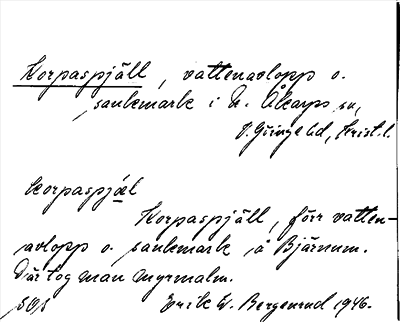 Korpaspjäll, vattenavlopp o.
sankmark i N. Åkarps sn,
V. Göinge hd, Krist. l.
korpaspjæl
Korpaspjäll, förr vatten-
avlopp o. sankmark å Bjärnum.
Där tog man myrmalm.
Erik W. Bergenrud 1946.